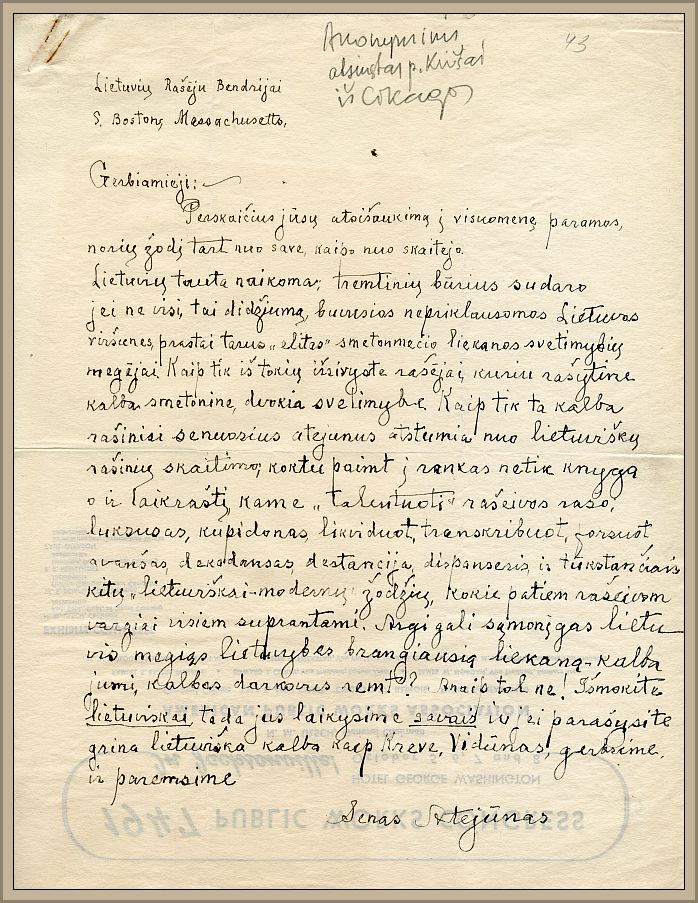 Anonyminis
atsiųstas p. Kiršai
iš Čikagos
43
Lietuvių Rašėju Bendrijai
S. Boston, Massachusetts,
Gerbiamieji:
Perskaičius jūsų atsišaukimą į visuomenę paramos,
noriu žodį tart nuo savę, kaipo nuo skaitėjo.
Lietuvių tauta naikoma; tremtinių būrius sudaro
jei ne visi, tai didžiuma, buvusios nepriklausomos Lietuvos
viršunes, prastai tarus „elitas" smetonmečio liekanos svetimybių
megėjai. Kaip tik iš tokių išsivystė rašėjai, kuriu rašytinė
kalba smetoninė, dvokia svetimybe. Kaip tik ta kalba
rašiniai senuosius atejunus atstumia nuo lietuviškų
rašinių skaitimo; koktu paimt į rankas netik knyga
o ir laikraštį kame „talentuoti" rašeivos rašo,
luksusas, kupidonas, likviduot, transkribuot, forsuot
avansas, dekadansas, destancija, dispanseris, ir tukstančiais
kitų „lietuviškai-modernų" žodžių, kokie patiem rašeivom
vargiai visiem suprantami. Argi gali sąmonįgas lietu
vis megįąs lietuvybes brangiausią liekaną-kalba
jumi, kalbos darkovus remt? Anaip tol ne! Išmokite
lietuviskai, tada jus laikysime savais ir jei parašysite
grina lietuviška kalba kaip Kreve, Vidūnas, gerbsime,
ir paremsime
Senas Atejūnas
EXHIBITS
AMERICAN PUBLIC WORKS ASSOCIATION
in Jacksonville!
October 5, 6, 7 and 8
HOTEL GEORGE WASHINGTON
1947 PUBLIC WORKS CONGRESS